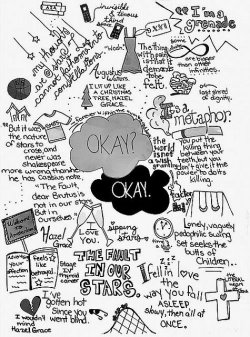 invisible
& dress
third
some
"I'm a
grenade
my thoughts
are stars I
cannot fathom
into
constellations
Augustus
Waters
"The thing
with pain
is that it
demands
to be
felt.
Some
infinities
are bigger
than other
infinities.
last
shred of
dignity.
I LIT UP LIKE
A CHRISTMAS
TREE, HAZEL
GRACE.
It's a
metaphor.
"But it was
the nature
of stars to
cross, and
never was
Shakespeare
more wrong than when
he has Cassius note,
"The fault,
dear Brutus is
not in our stars
But in
ourselves."
OKAY?
OKAY.
the
world
is not
a wish
granting
You put the
killing thing
between your
teeth, but you
don't give it the
power to do its
killing.
Welcome
to
Hazel
Grace
I
Love
You.
sipping
stars
Lonely, vaguely
pedophilic swing
set seeks the
butts of
Children.
your
affection
I
feel like
betrayal.
Stage
IV
thyroid
cancer
THE FAULT
IN OUR
STARS.
I fell in love
the
way you fall
ASLEEP
slowly, then all at
ONCE.
I've
gotten hot
Since you
went blind.
I wouldn't
mind
Hazel Grace